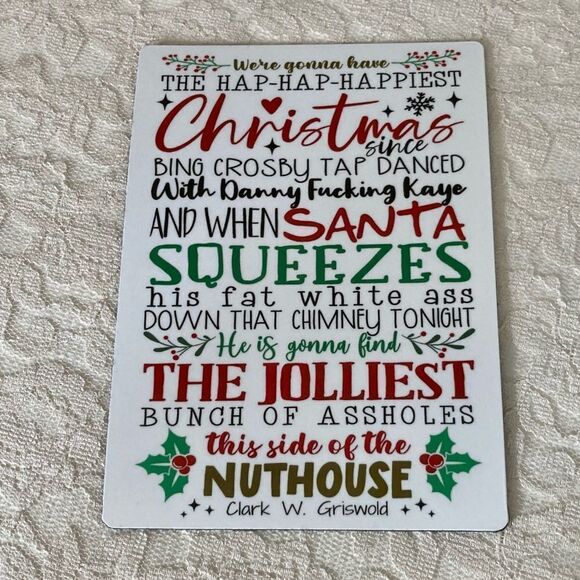 We're gonna have
THE HAP-HAP-HAPPIEST
Christmas
since
BING CROSBY TAP DANCED
With Danny Fucking Kaye
AND WHEN SANTA
SQUEEZES
his fat white ass
DOWN THAT CHIMNEY TONIGHT
He is gonna find
THE JOLLIEST
BUNCH OF ASSHOLES
this side of the
NUTHOUSE
Clark W. Griswold